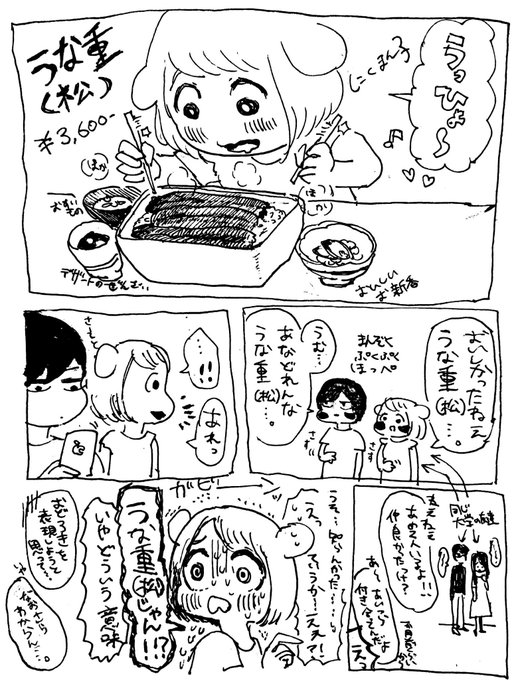 うな重
(松)
¥3,600-
うっひょ〜
にくまん子
ほか
ほっ
かり
おすいもの
デザートのぜんざい
おいしい
お新香
おいしかったねえ
うな重
(松)…。
まんぞく
ぷくぷく
ほっぺ
うむ…
あなどれんな
うな重
(松)…。
さす
さす
…!!
あれっ
同じ
大学の後輩
ねえねえ
あのふたりいるよ!!
仲良かったっけ?
あら、あいつら
付き合ってんだよ
うそ…知らんかった…!
えっ…ていうか…ええ?
ガビーン
うな重(松)じゃん!!?
いやどういう意味
おどろきを
表現しようと
思って…。
なおさら
わからん…。